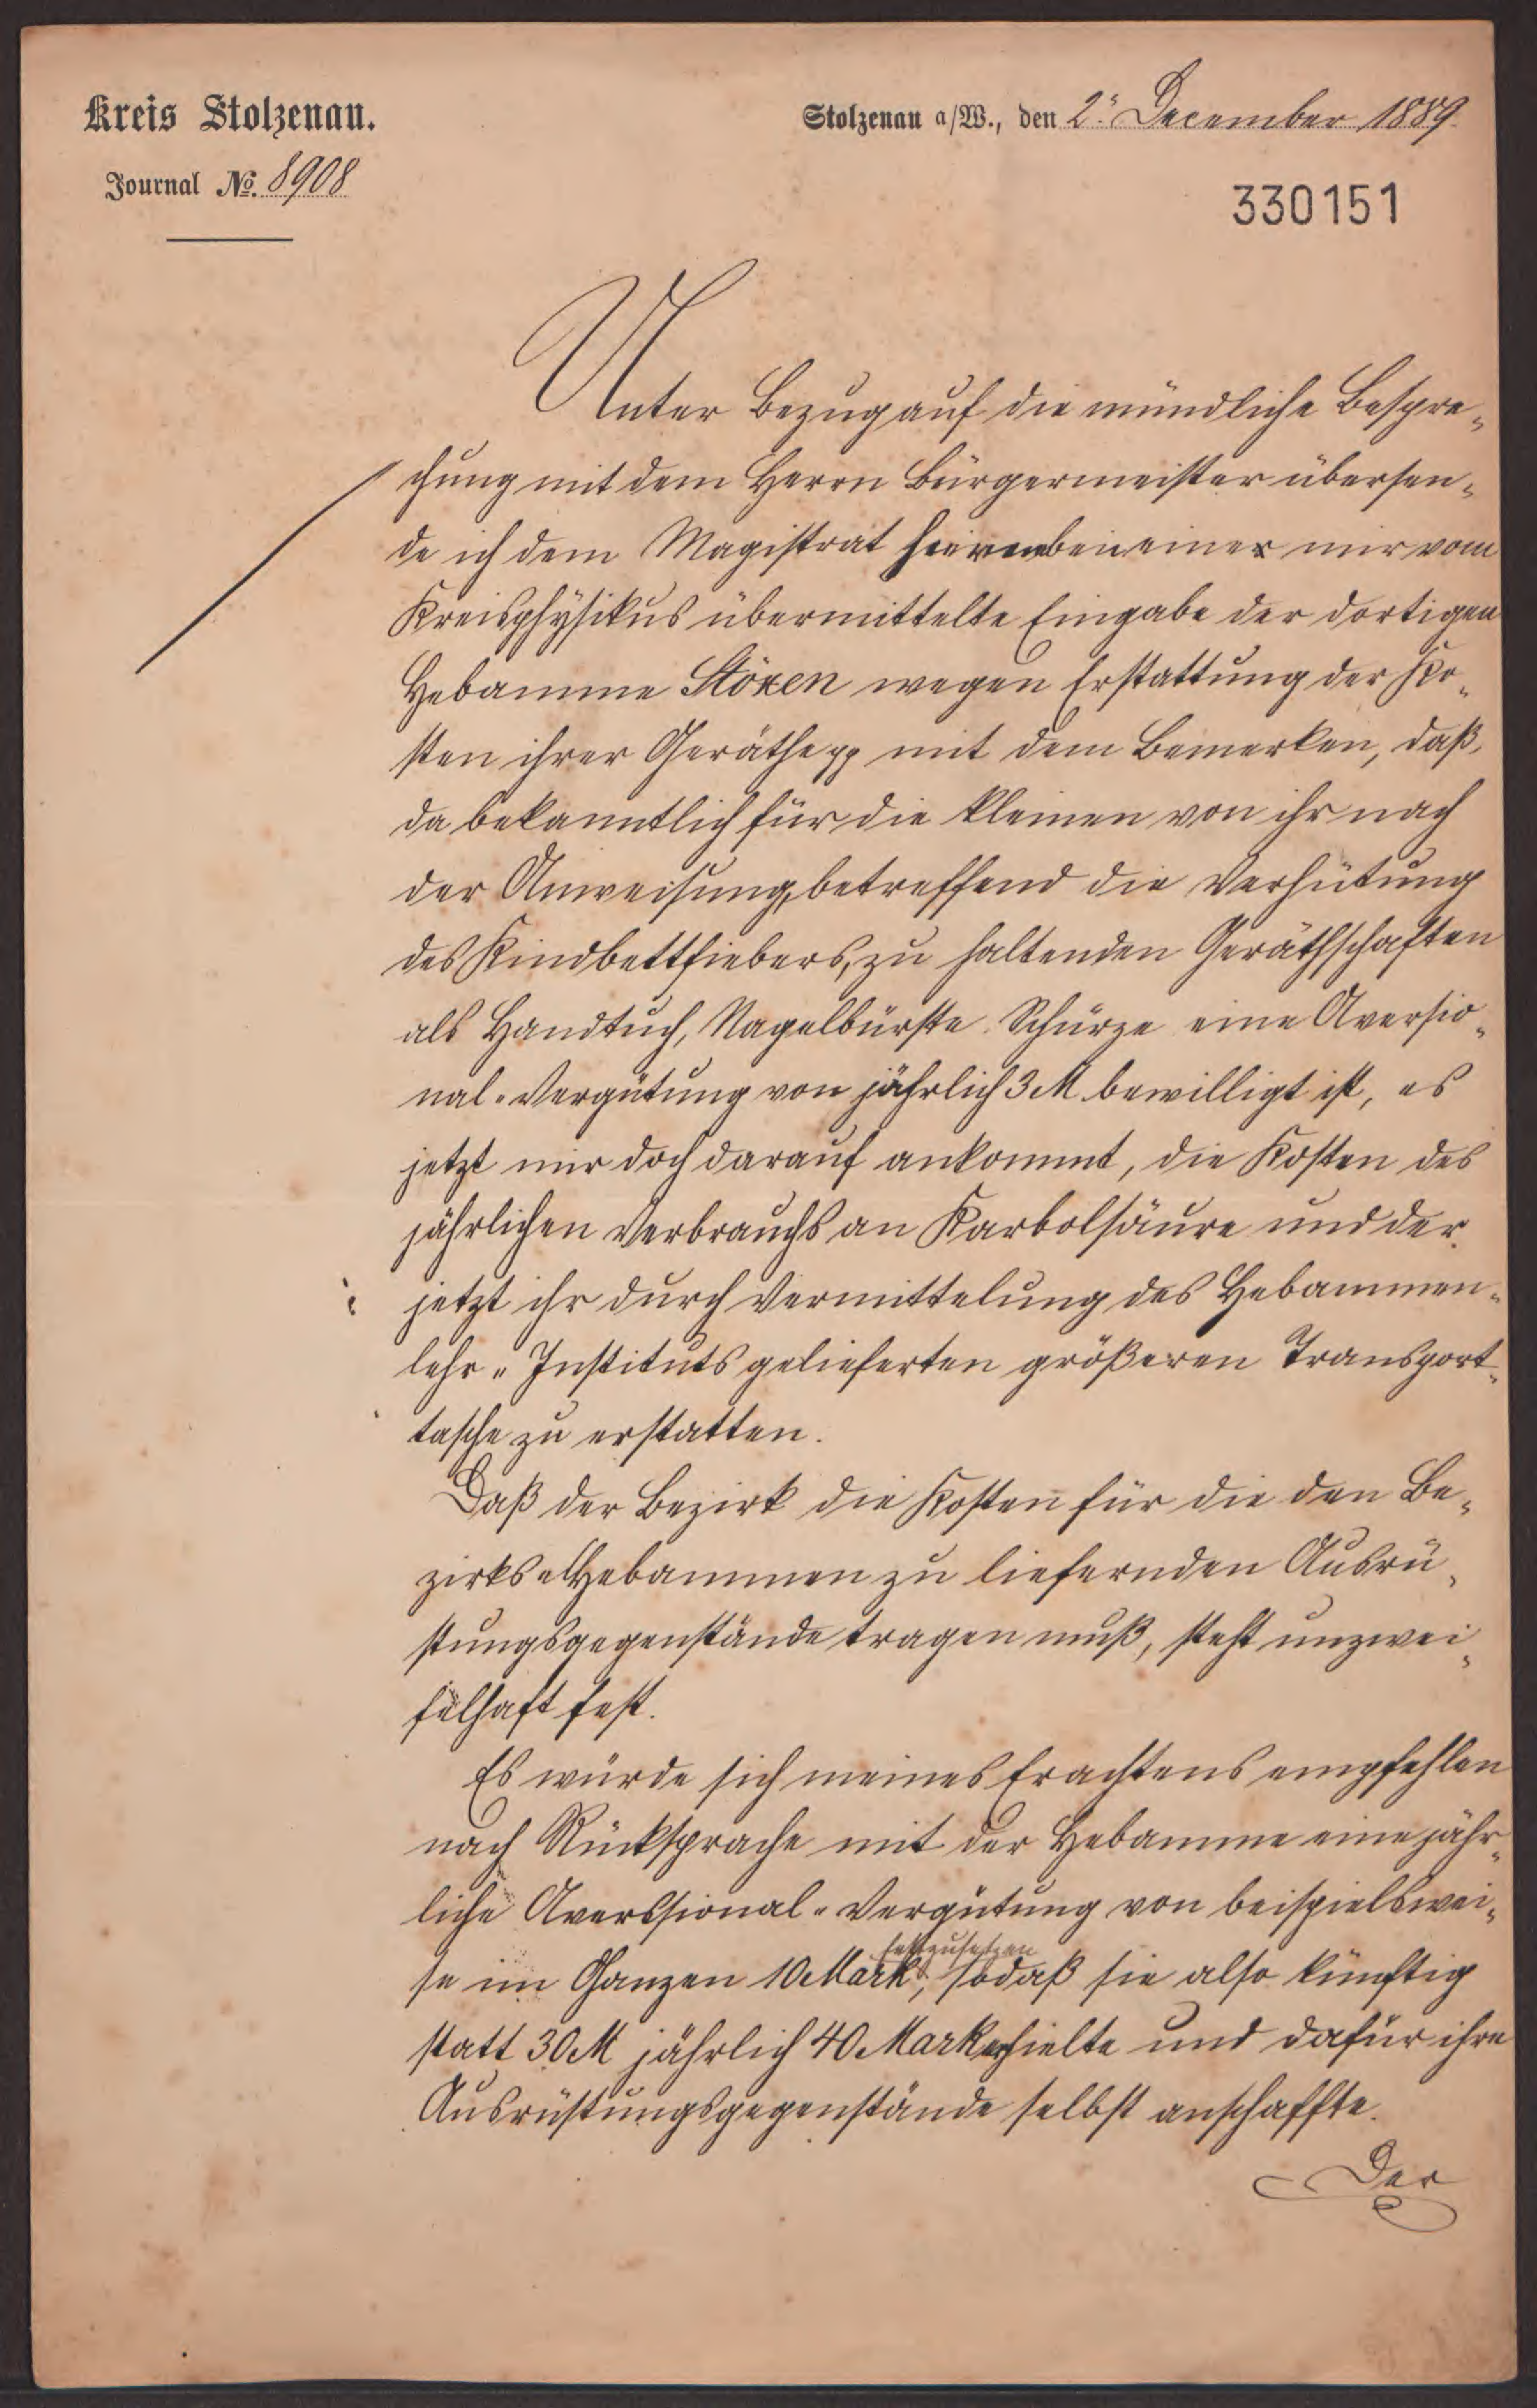 Kreis Stolzenau.
Stolzenau a/W., den 2. December 1889.
Journal No. 8908
330151
Unter Bezug auf die mündliche Bespre-
chung mit dem Herrn Bürgermeister übersen-
de ich dem Magistrat eine mir vom
Kreisphysikus übermittelte Eingabe der dortigen
Hebamme Stöxen wegen Erstattung der Ko-
sten ihrer Geräthe pp mit dem Bemerken, daß,
da bekanntlich für die kleinen von ihr nach
der Anweisung, betreffend die Verhütung
des Kindbettfiebers, zu haltenden Geräthschaften
als Handtuch, Nagelbürste Schürze eine Aversio-
nal-Vergütung von jährlich 3 M bewilligt ist, es
jetzt nur doch darauf ankommt, die Kosten des
jährlichen Verbrauchs an Karbolsäure und der
jetzt ihr durch Vermittelung des Hebammen-
lehr-Instituts gelieferten größeren Transport-
tasche zu erstatten.
Daß der Bezirk die Kosten für die den Be-
zirks-Hebammen zu liefernden Ausrü-
stungsgegenstände tragen muß, steht unzwei-
felhaft fest.
Es würde sich meines Erachtens empfehlen
nach Rücksprache mit der Hebamme eine jähr-
liche Averssional-Vergütung von beispielswei-
festzusetzen
se im Ganzen 10 Mark, sodaß sie also künftig
statt 30 M jährlich 40 Mark erhielte und dafür ihre
Ausrüstungsgegenstände selbst anschaffte.
Der